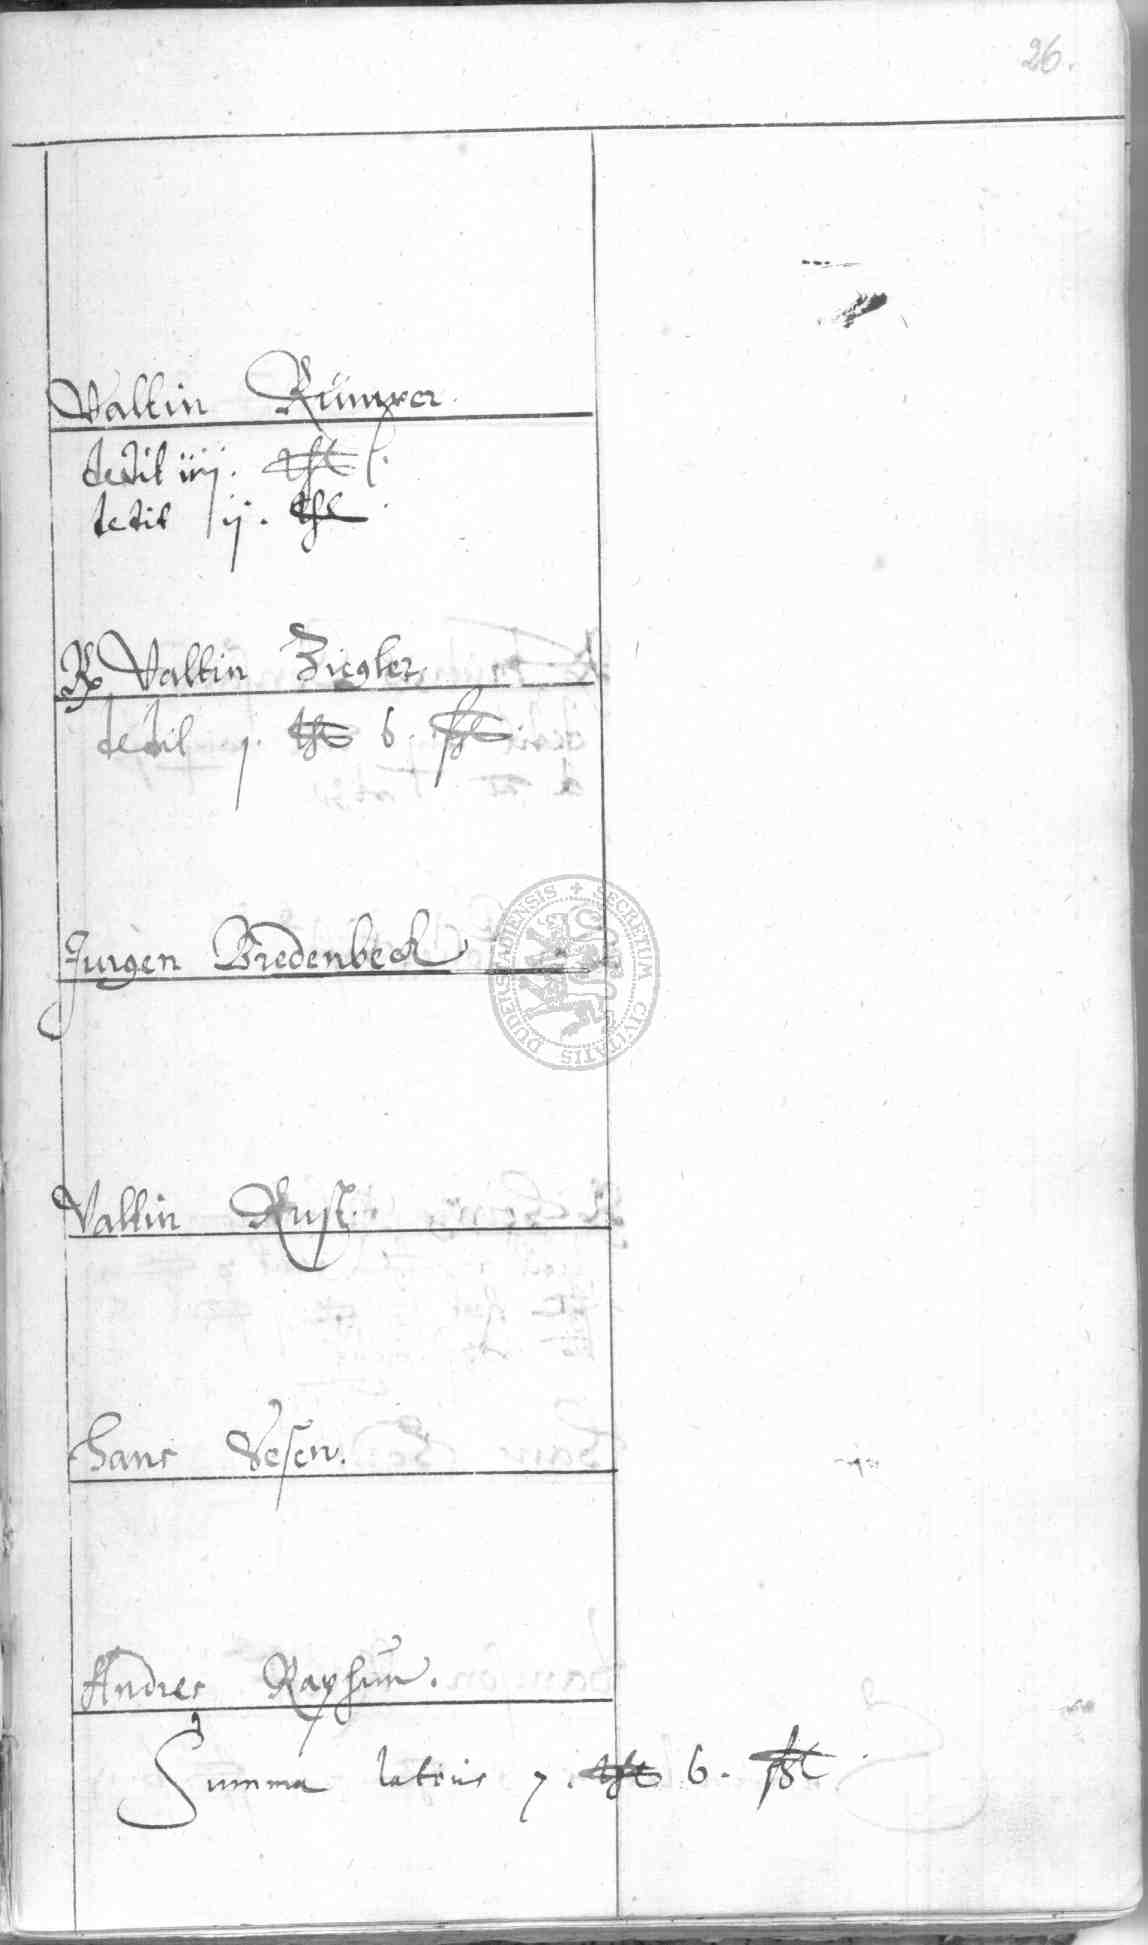 26.
Valtin Rümper.
dedit iiij. thl
dedit ij. thl
Valtin Ziegler
dedit j. thl 6. ßl
Jurgen Bredenbeck
SECRETUM CIVITATIS DUDERSTADIENSIS
Valtin Rust.
Hans Vesen.
Andres Raphun.
Summa lateris 7. thl 6. ßl